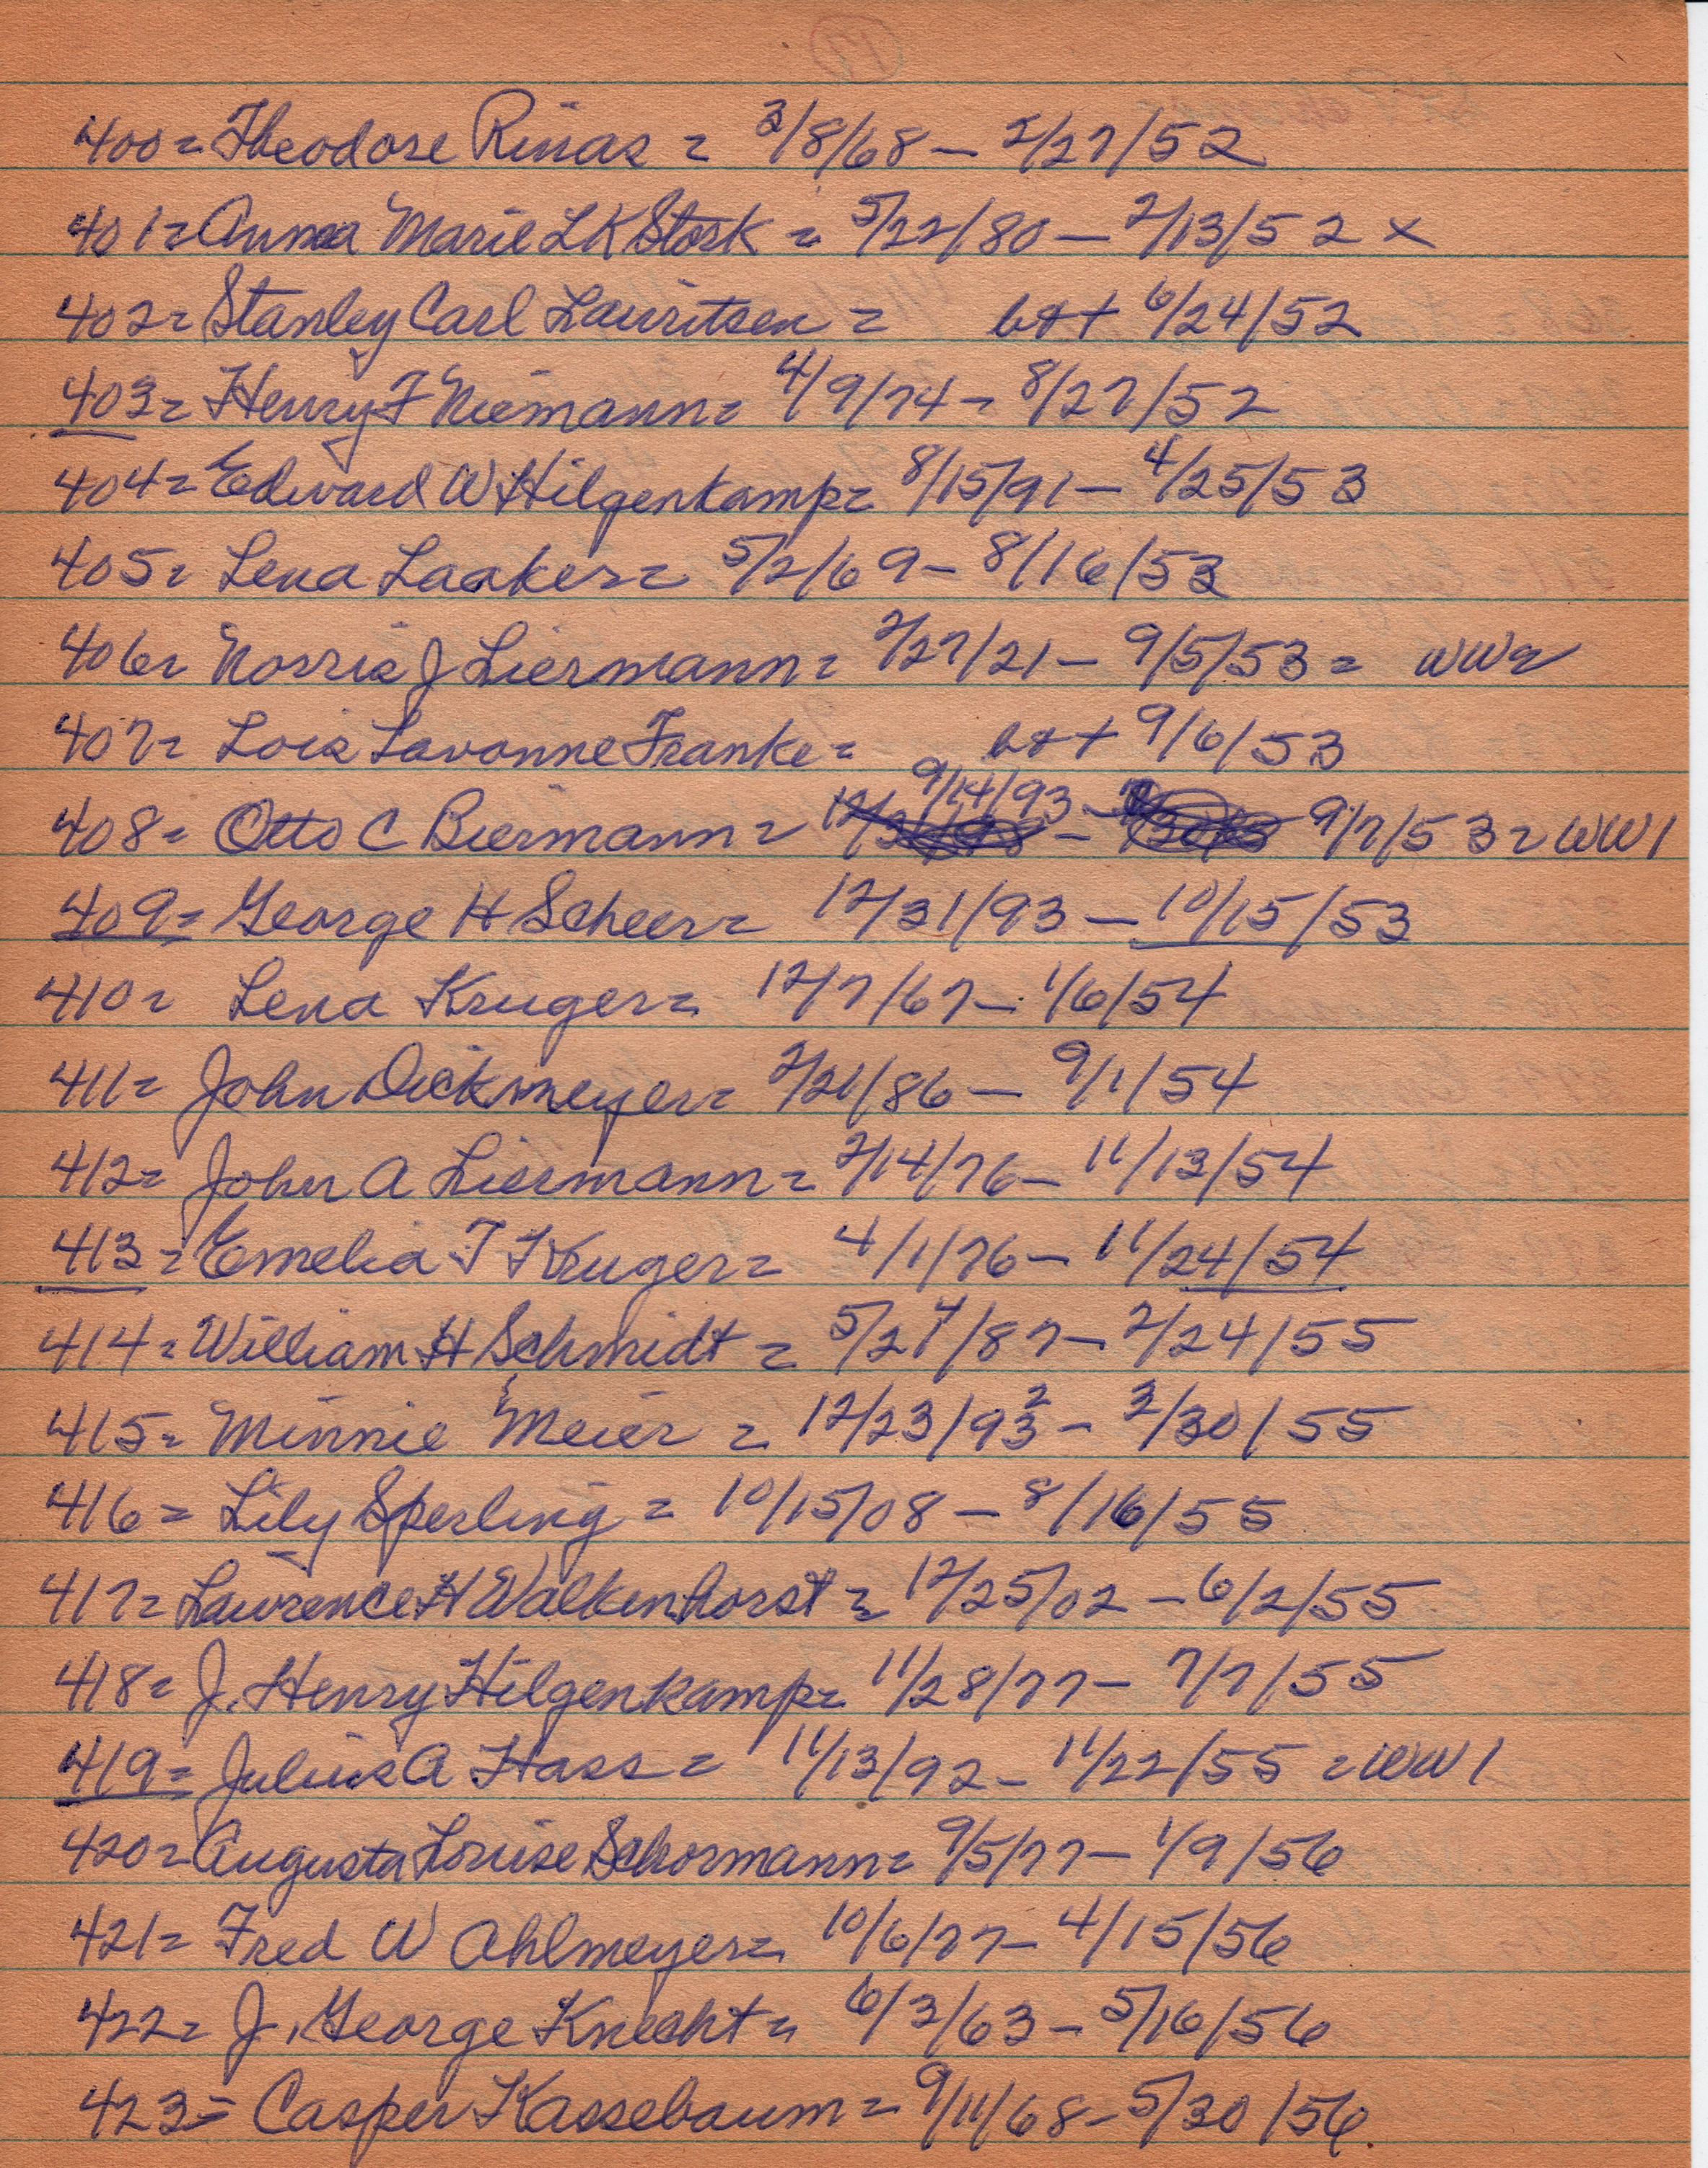 17
400 = Theodore Rinas = 3/8/68 - 2/27/52
401 = Anna Marie L K Stork = 5/22/80 - 2/13/52 x
402 = Stanley Carl Lauritsen = b++ 6/24/52
403 = Henry F Niemann = 4/9/74 - 8/27/52
404 = Edward W Hilgenkamp = 8/15/91 - 4/25/53
405 = Lena Laaker = 5/2/69 - 8/16/53
406 = Norris J Liermann = 2/27/21 - 9/5/53 = WW2
407 = Lois Lavonne Franke = b++ 9/6/53
408 = Otto C Biermann = 9/14/93 - 9/7/53 = WW1
409 = George H Scheer = 12/31/93 - 10/15/53
410 = Lena Kruger = 12/7/67 - 1/6/54
411 = John Dickmeyer = 2/21/86 - 9/1/54
412 = John A Liermann = 2/14/76 - 11/13/54
413 = Emelia T Kruger = 4/1/76 - 11/24/54
414 = William H Schmidt = 5/24/87 - 2/24/55
415 = Minnie Meier = 12/23/93 2 - 3/30/55
416 = Lily Sperling = 10/15/08 - 8/16/55
417 = Lawrence H Walkenhorst = 12/25/02 - 6/2/55
418 = J. Henry Hilgenkamp = 11/28/77 - 7/7/55
419 = Julius A Hass = 11/13/92 - 11/22/55 = WW1
420 = Augusta Louise Schormann = 9/5/77 - 1/9/56
421 = Fred W Ahlmeyer = 10/6/77 - 4/15/56
422 = J. George Knecht = 6/3/63 - 5/16/56
423 = Casper Kassebaum = 9/11/68 - 5/30/56